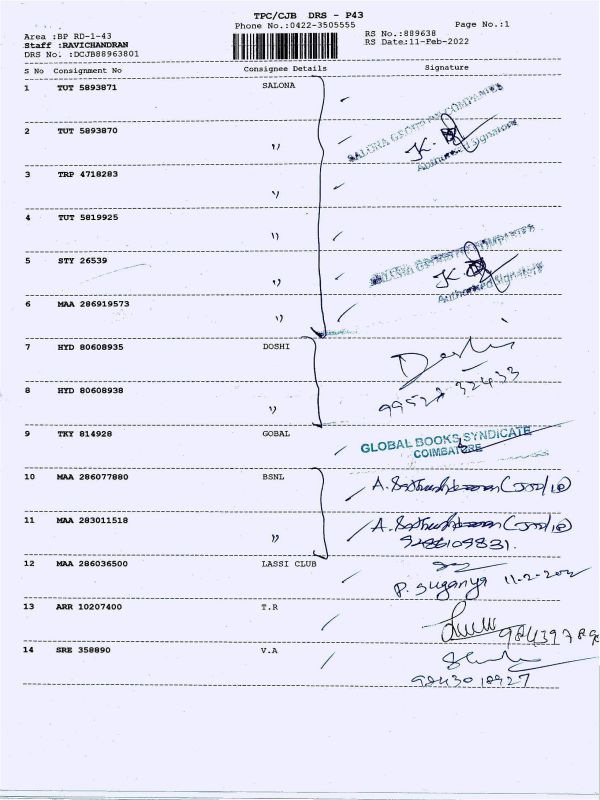 TPC/CJB DRS - P43
Phone No.:0422-3505555
Page No.:1
Area :BP RD-1-43
Staff :RAVICHANDRAN
DRS No. :DCJB88963801
RS No.:889638
RS Date:11-Feb-2022
S No Consignment No Consignee Details Signature
1 TUT 5893871 SALONA
SALONA GROUP OF COMPANIES
2 TUT 5893870 "
K.
Authorised Signatory
3 TRP 4718283 "
4 TUT 5819925 "
5 STY 26539 "
K.
Authorised Signatory
6 MAA 286919573 "
7 HYD 80608935 DOSHI
Doshi
8 HYD 80608938 "
99527 32433
9 TKY 814928 GOBAL
GLOBAL BOOKS SYNDICATE
COIMBATORE
10 MAA 286077880 BSNL
11 MAA 283011518 "
9486109831.
12 MAA 286036500 LASSI CLUB
P. Suganya 11-2-202
13 ARR 10207400 T.R
984397890
14 SRE 358890 V.A
9843018927